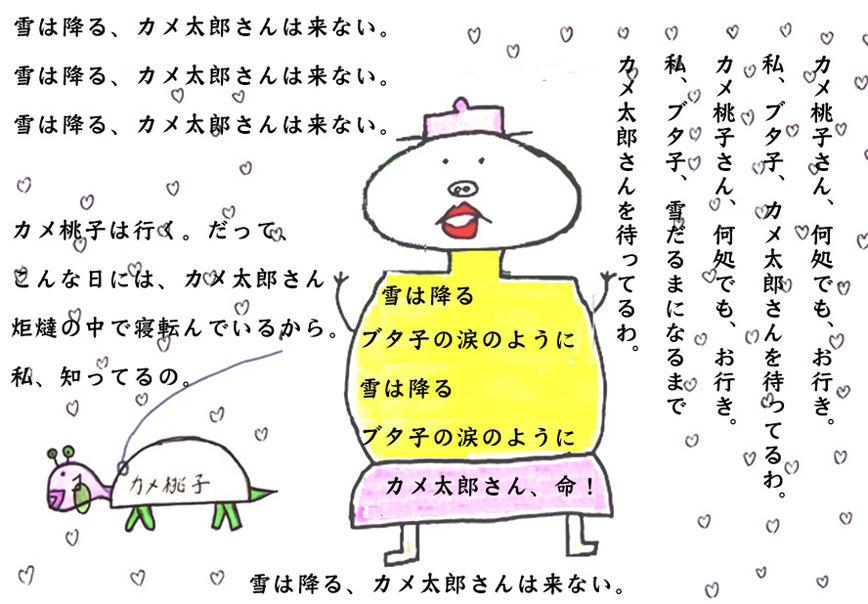 雪は降る、カメ太郎さんは来ない。
雪は降る、カメ太郎さんは来ない。
雪は降る、カメ太郎さんは来ない。
カメ桃子は行く。だって、
こんな日には、カメ太郎さん
炬燵の中で寝転んでいるから。
私、知ってるの。
カメ桃子さん、何処でも、お行き。
私、ブタ子、カメ太郎さんを待ってるわ。
カメ桃子さん、何処でも、お行き。
私、ブタ子、雪だるまになるまで
カメ太郎さんを待ってるわ。
雪は降る
ブタ子の涙のように
雪は降る
ブタ子の涙のように
カメ太郎さん、命！
カメ桃子
雪は降る、カメ太郎さんは来ない。